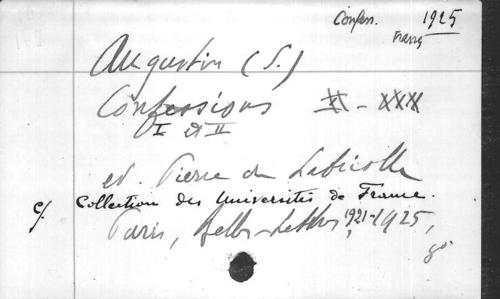 Confess. 1925
França
Augustin (S.)
Confessions
I et II
ed. Pierre de Labriolle
cf. Collection des Universités de France.
Paris, Belles-Lettres 1921-1925,
8º